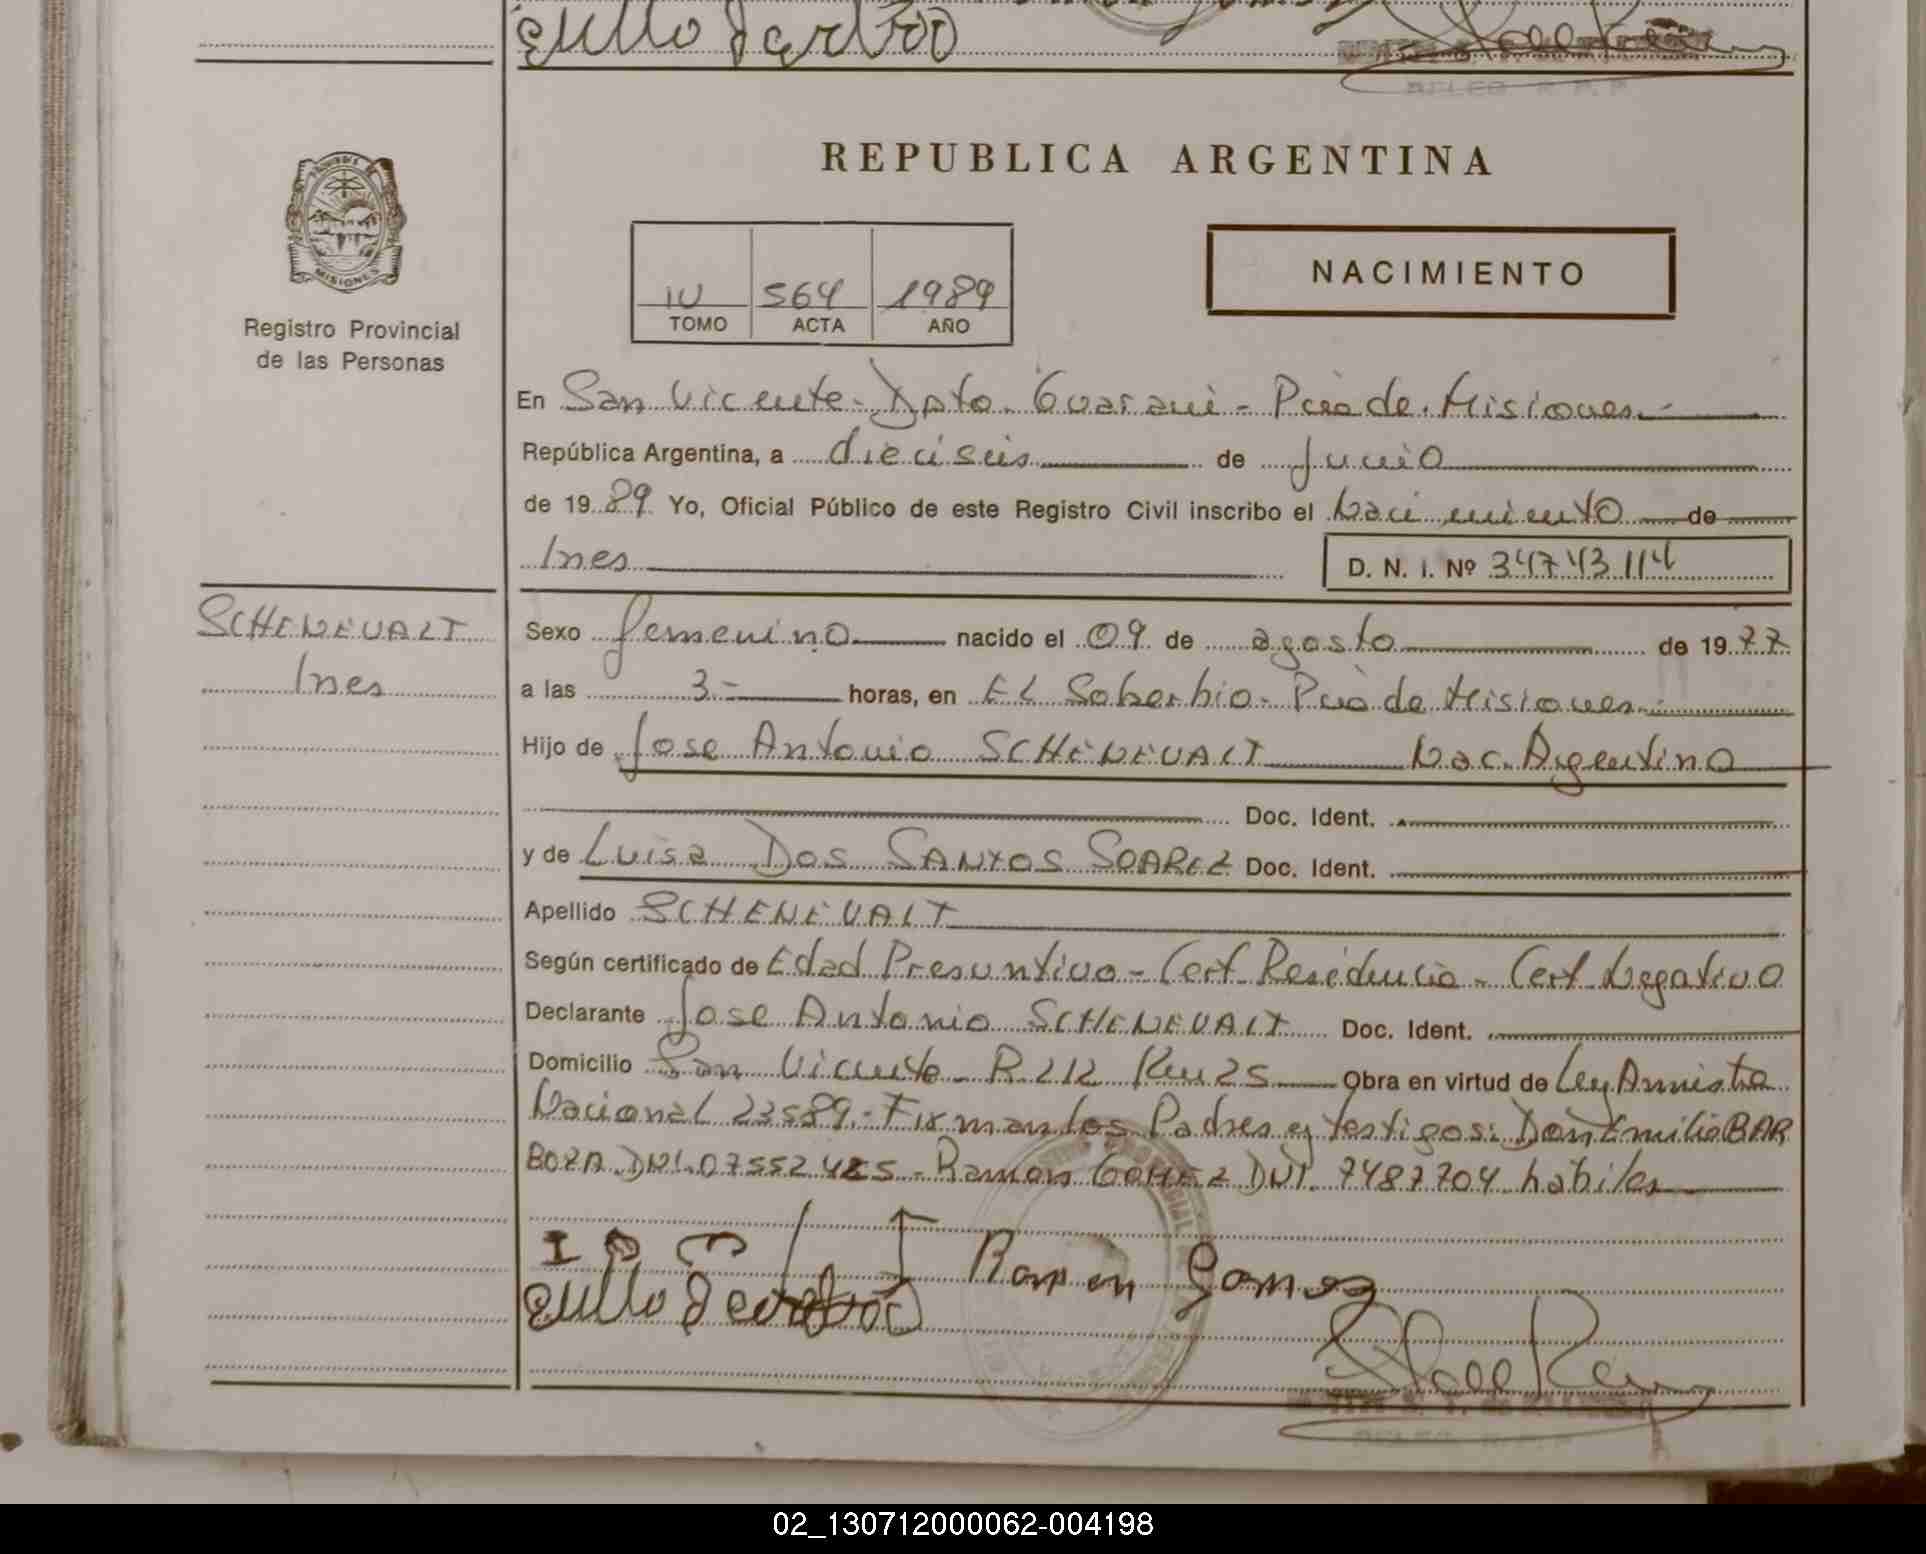 REPUBLICA ARGENTINA
MISIONES
Registro Provincial
de las Personas
IV 564 1989
TOMO ACTA AÑO
NACIMIENTO
En San Vicente - Dpto. Guarani - Pcia de Misiones.-
República Argentina, a dieciseis de Junio
de 1989 Yo, Oficial Público de este Registro Civil inscribo el Nacimiento de
Ines D. N. I. Nº 34743114
SCHENEVALT
Ines
Sexo femenino nacido el 09 de agosto de 1977
a las 3.- horas, en El Soberbio - Pcia de Misiones.
Hijo de Jose Antonio SCHENEVALT Nac. Argentino
Doc. Ident.
y de Luisa DOS SANTOS SOAREZ Doc. Ident.
Apellido SCHENEVALT
Según certificado de Edad Presuntiva - Cert Residencia - Cert Negativo
Declarante Jose Antonio SCHENEVALT Doc. Ident.
Domicilio San Vicente - R 212 Km 25 Obra en virtud de Ley Amnistia
Nacional 23589.- Firman los Padres y testigos: Don Emilio BAR
BOZA DNI. 07552425 - Ramon GOMEZ DNI. 7487704 habiles
Ramon Gomez
02_130712000062-004198